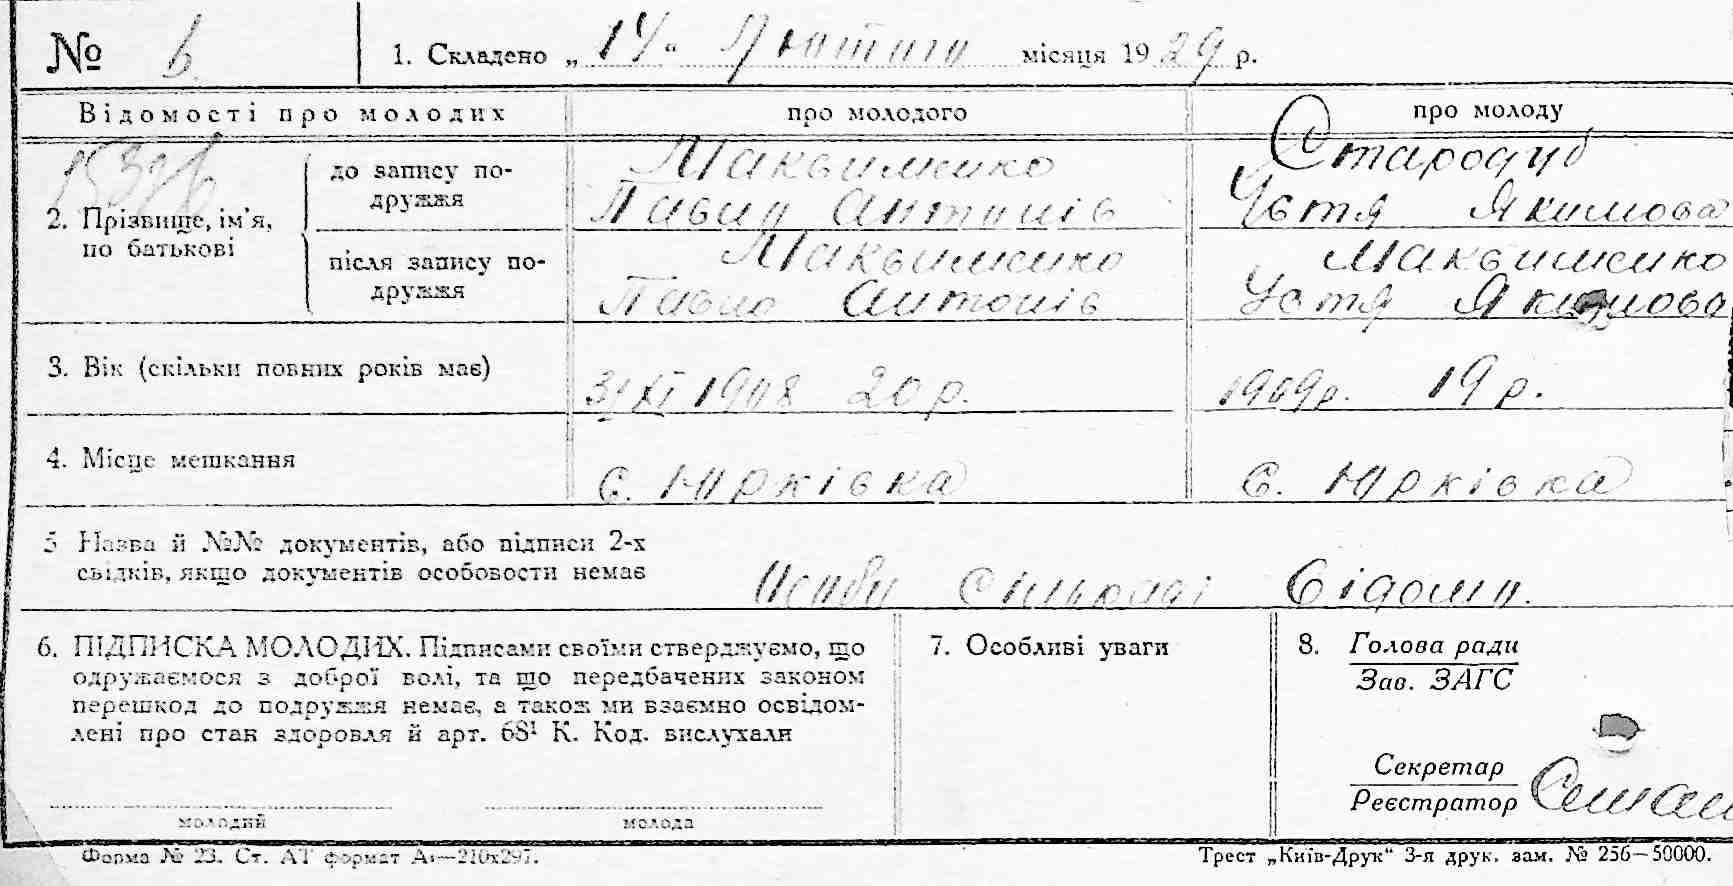 № 6. 1. Складено „14“ Лютого місяця 1929 р.
Відомості про молодих про молодого про молоду
2. Прізвище, ім’я, по батькові
до запису по-
дружжя
Максименко
Павло Антонів
Стародуб
Устя Якимова
після запису по-
дружжя
Максименко
Павло Антонів
Максименко
Устя Якимова
3. Вік (скільки повних років має) 31/XI 1908 20 р. 1909 р. 19 р.
4. Місце мешкання с. Юрківка с. Юрківка
5 Назва й №№ документів, або підписи 2-х
свідків, якщо документів особовости немає
Особи сільраді відомі.
6. ПІДПИСКА МОЛОДИХ. Підписами своїми стверджуємо, що
одружаємося з доброї волі, та що передбачених законом
перешкод до подружжя немає, а також ми взаємно освідом-
лені про стан здоровля й арт. 68¹ К. Код. вислухали
молодий молода
7. Особливі уваги
8. Голова ради
Зав. ЗАГС
Секретар
Реєстратор
Форма № 23. Ст. АТ формат А₄—210х297.
Трест „Київ-Друк“ 3-я друк. зам. № 256—50000.